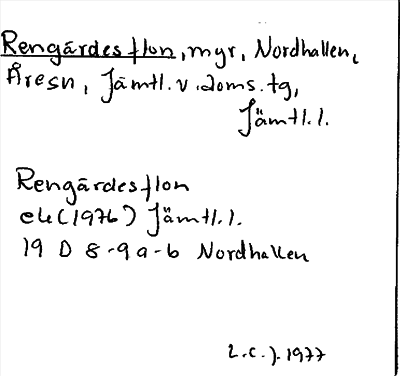 Rengärdesflon, myr, Nordhallen,
Åresn, Jämtl. v. doms. tg,
Jämtl. l.
Rengärdesflon
ek (1976) Jämtl. l.
19 D 8-9 a-b Nordhallen
L.C.J. 1977